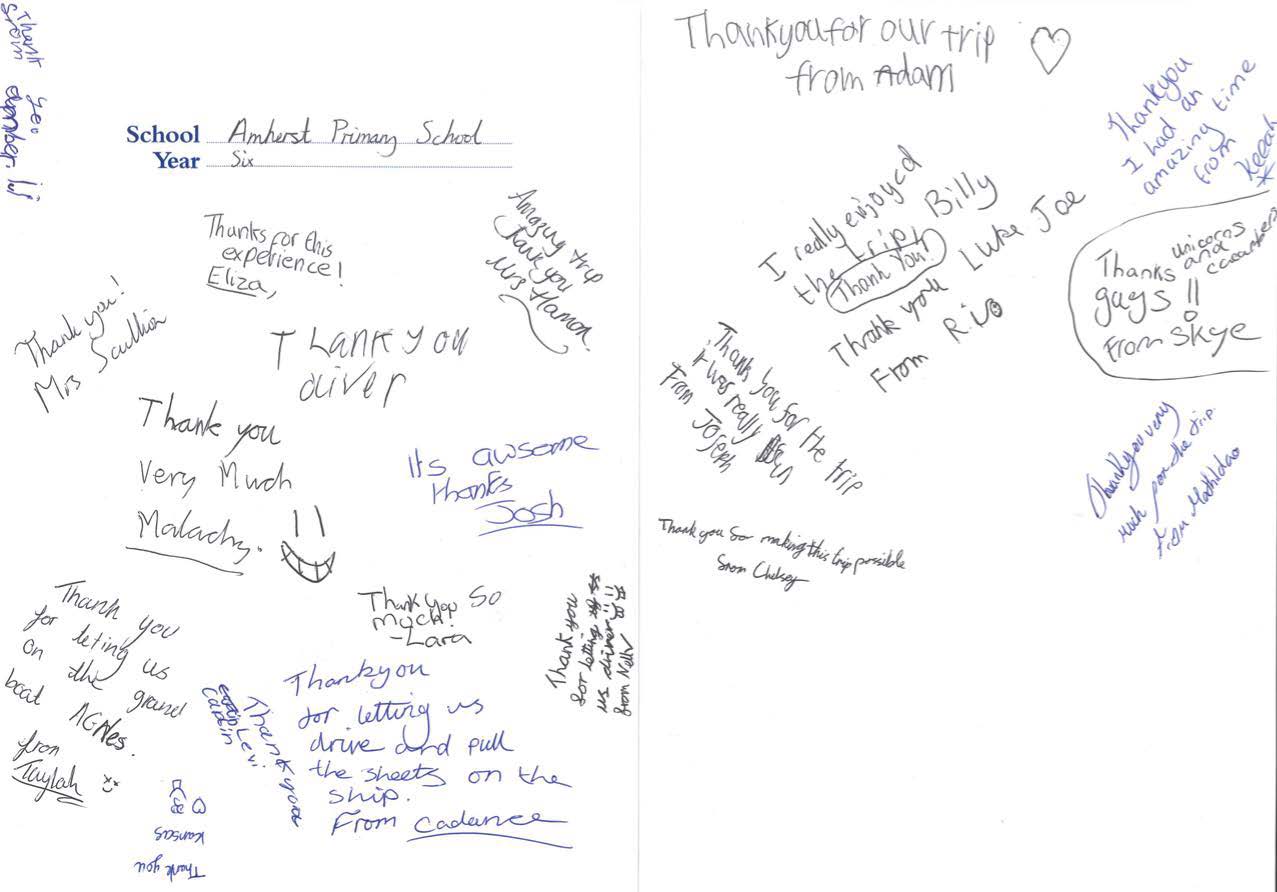 Thank you
from
School Amherst Primary School
Year Six
Thanks for this
experience!
Eliza,
Amazing trip
Thank you
Mrs Hamon.
Thank you!
Mrs Scullion
Thank you
oliver
Thank you
Very Much
Malachy.
Its awsome
thanks
Josh
Thank you
for leting us
on the grand
boat AGNes.
from
Taylah
Thank you so
much!
-Lara
Thank you
for letting
us
from
Thankyou
Levi
Thankyou
for letting us
drive and pull
the sheets on the
ship.
From Cadance
Thank you
Kansas
Thankyou for our trip
from Adam
Thankyou
I had an
amazing time
from
Keeah
I really enjoyed
the trip, Billy
Thank You!
Luke Joe
Thank you
From Rio
Thanks unicorns
and
guys!!
From Skye
Thank you for the trip
it was really
From Joseph
Thankyou very
much for the trip.
from
Thank you for making this trip possible
from Chelsey